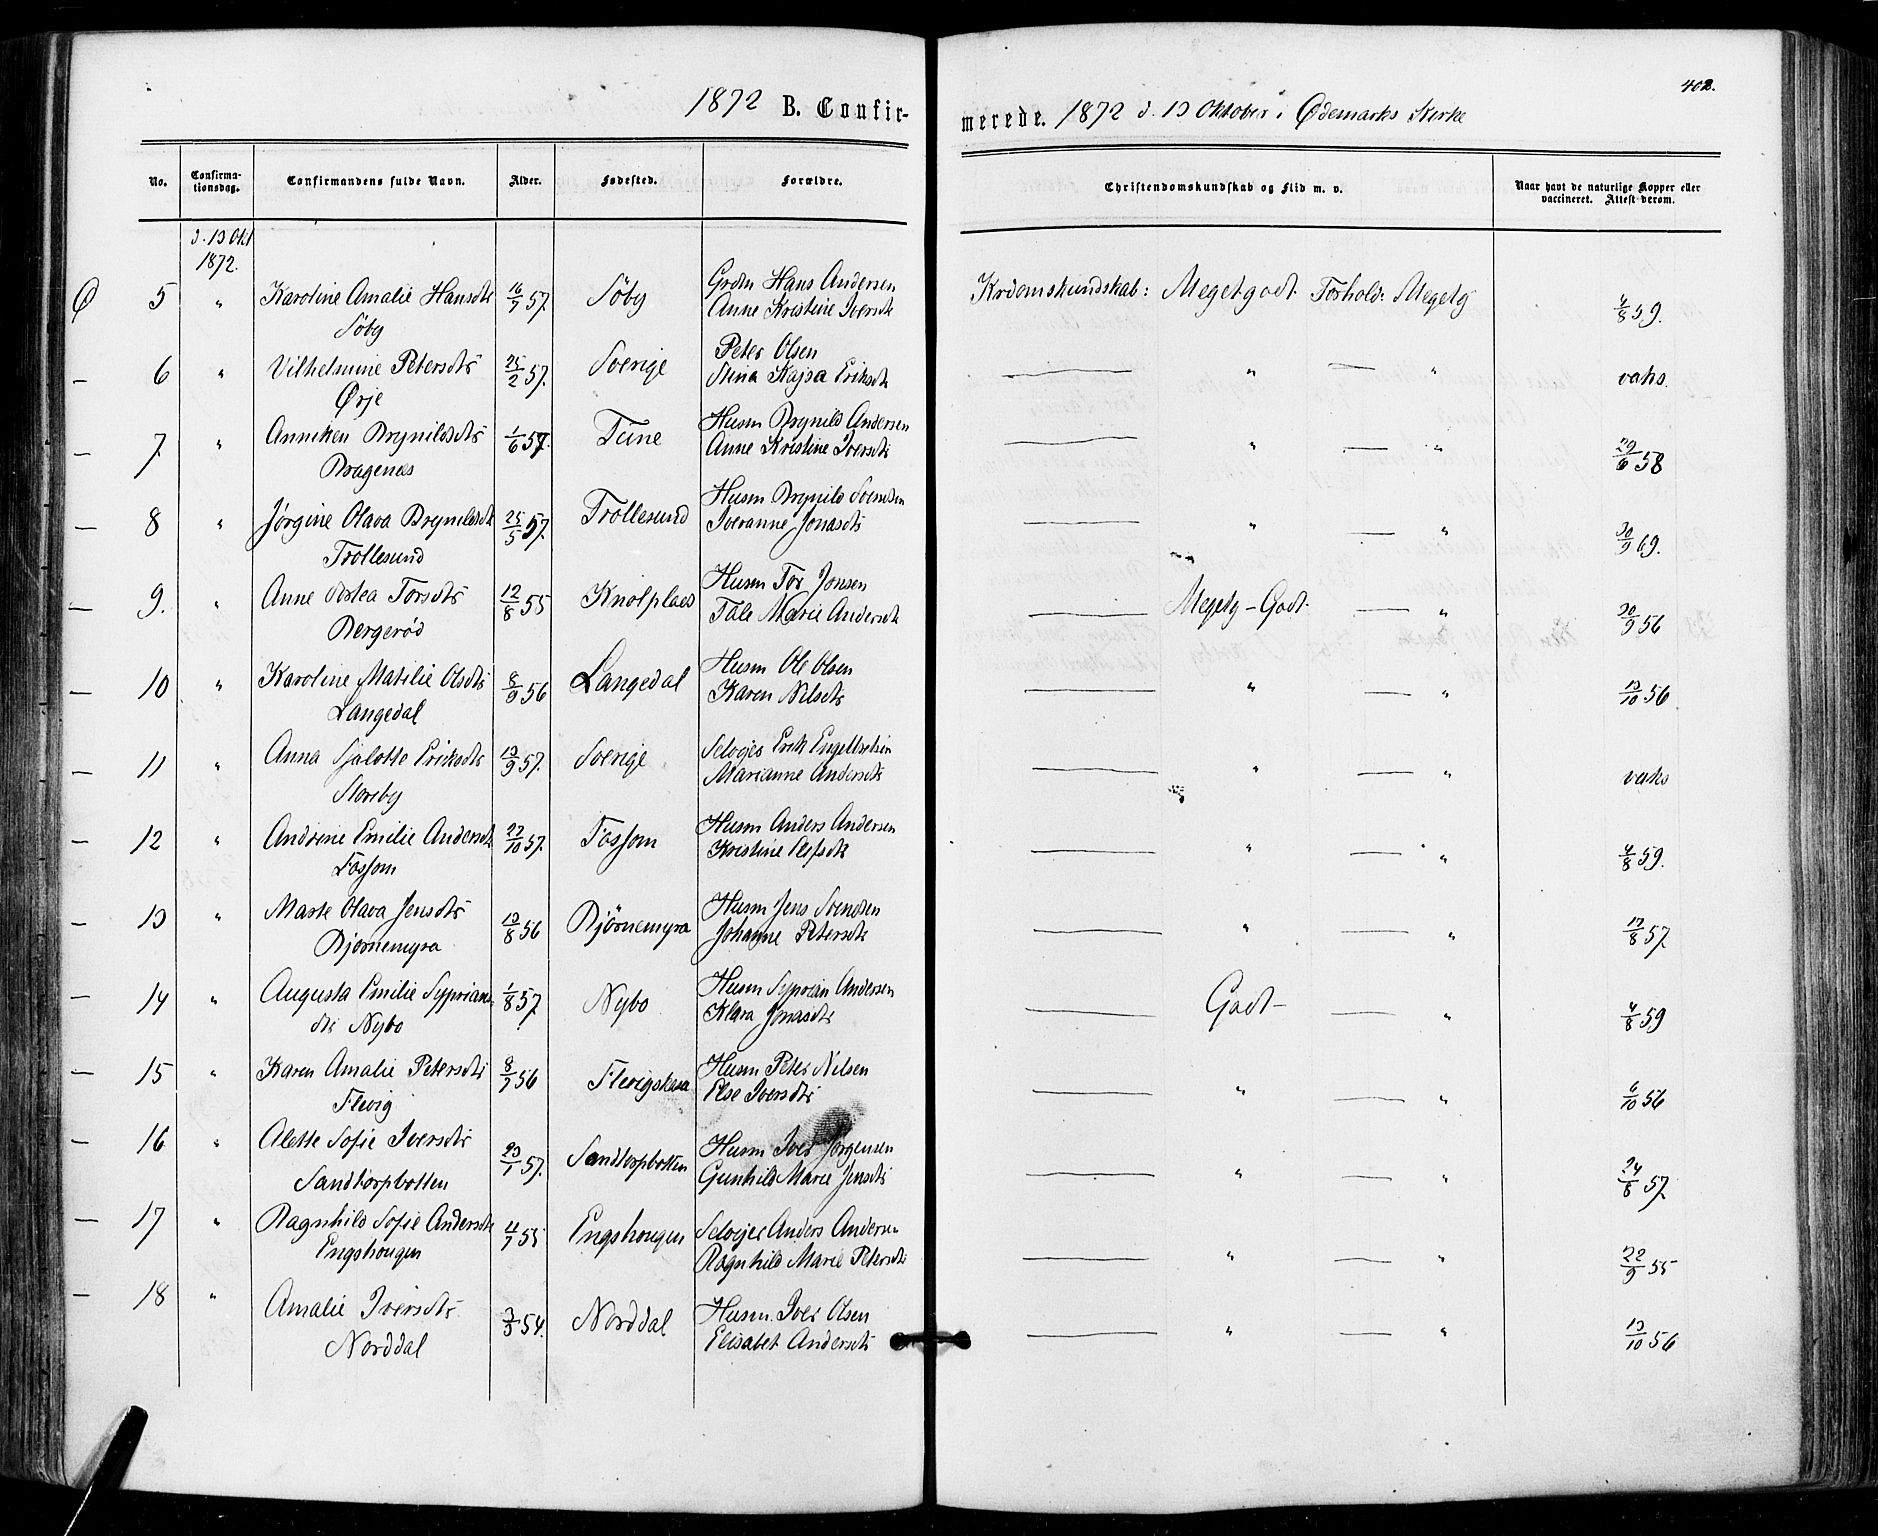 1872 B. Confir-
merede. 1872 d. 13 Oktober i Ødemarks Kirke
402.
No. Confirma-tionsdag. Confirmandens fulde Navn. Alder. Fødested. Forældre. Christendomskundskab og Flid m. v. Naar havt de naturlige Kopper eller vaccineret. Attest derom.
d. 13 Okt
1872.
Ø 5 " Karoline Amalie Hansdtr 16/7 57. Söby Grdm Hans Andersen Krdomskundskab: Megetgodt Forhold: Megetg 4/8 59.
Söby Anne Kristine Iversdtr
— 6 " Vilhelmine Petersdtr 25/2 57. Sverige Peter Olsen — " — " vaks.
Ørje Stina Kajsa Eriksdtr
— 7. " Anniken Brynildsdtr 1/6 57. Tune Husm Brynild Andersen — " — " 29/6 58
Bragenæs Anne Kristine Iversdtr
— 8 " Jørgine Olava Brynildsdtr 25/5 57. Trollesund Husm Brynild Svendsen — " — " 30/9 69.
Trollesund Iveranne Jonasdtr
— 9. " Anne Bertea Torsdtr 12/8 55 Knolplads Husm Tor Jonsen — Megetg - Godt. — " 30/9 56
Bergerød Tale Marie Andersdtr
— 10 " Karoline Matilie Olsdtr 8/9 56 Langedal Husm Ole Olsen — " — " 13/10 56
Langedal Karen Nilsdtr
— 11 " Anna Sjalotte Eriksdtr 13/9 57. Sverige Selvejer Erik Engelbretsen — " — " vaks
Storeby Marianne Andersdtr
— 12 " Andrine Emilie Andersdtr 27/10 57. Fossom Husm Anders Andersen — " — " 4/8 59.
Fossom Kristine
— 13 " Marte Olava Jensdtr 13/8 56 Bjørnemyra Husm Jens Svendsen — " — " 17/8 57.
Bjørnemyra Johanne Petersdtr
— 14 " Augusta Emilie Syprians- 1/8 57. Nybo Husm Syprian Andersen — Godt — — " 4/8 59
dtr Nybo Klara Jonasdtr
— 15 " Karen Amalie Petersdtr 8/7 56 Flevigskasa Husm Peter Nilsen — " — " 6/10 56
Flevig Else Iversdtr
— 16 " Alette Sofie Iversdtr 23/1 57. Sandtorpbotten Husm Iver Jørgensen — " — " 24/8 57.
Sandtorpbotten Gunhild Marie Jensdtr
— 17 " Ragnhild Sofie Andersdtr 4/7 55 Engshougen Selvejer Anders Andersen — " — " 22/9 55
Engshougen Ragnhild Marie Petersdtr
— 18 " Amalie Iversdtr 3/3 54. Norddal Husm. Iver Olsen — " — " 13/10 56
Norddal Elisabet Andersdtr